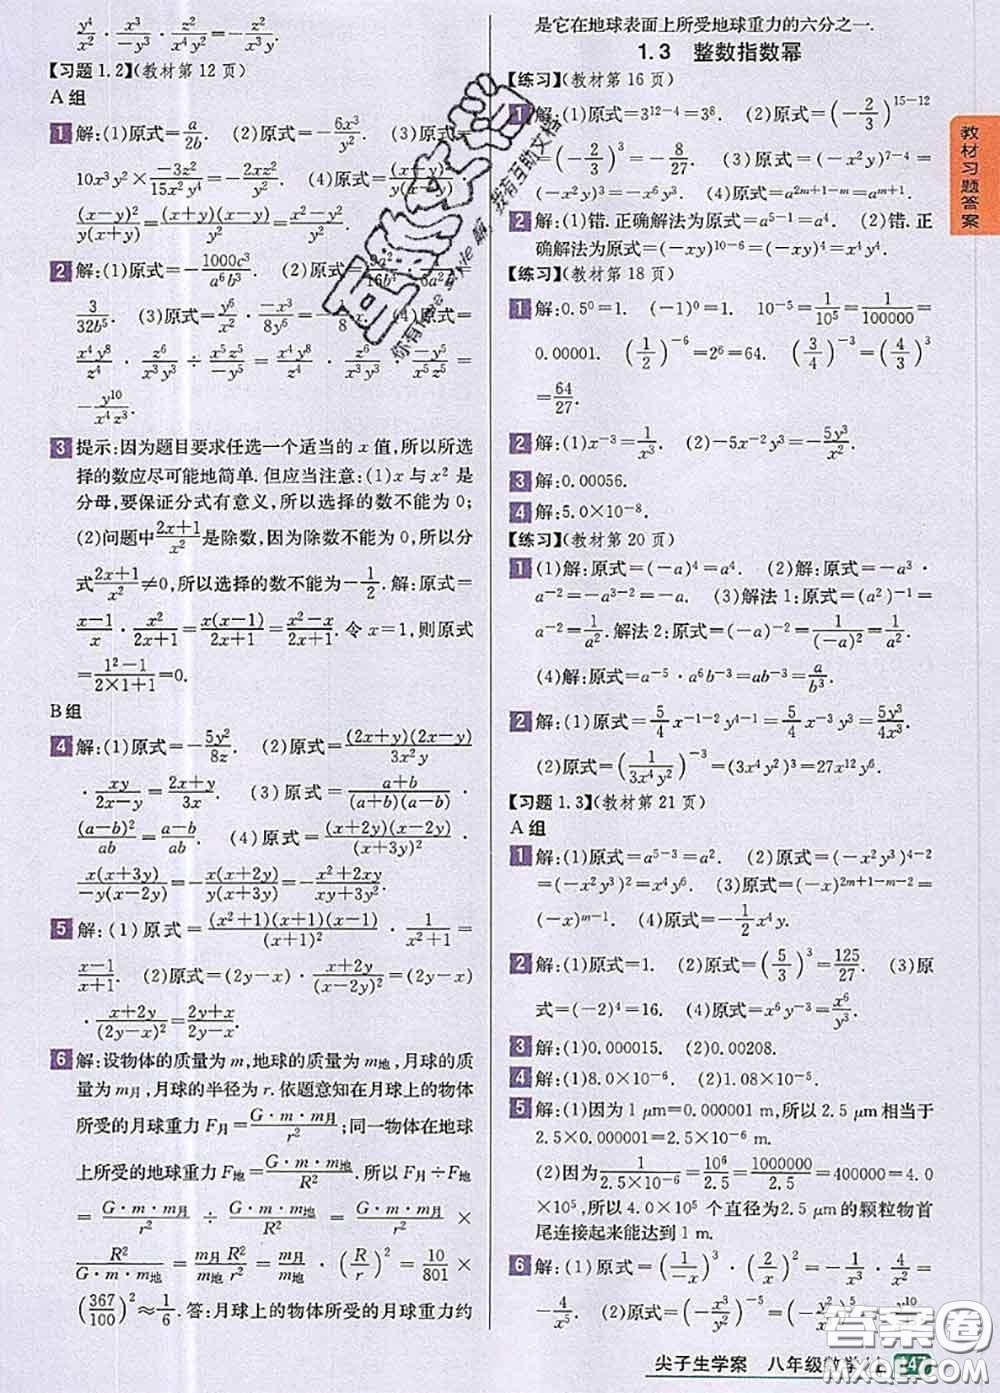 y⁴/x² · x³/(-y³) · z³/(x²y⁴) = -z³/(xy³).
【习题1.2】(教材第12页)
A组
1 解:(1)原式=a/(2b). (2)原式=-6x³/y³. (3)原式=
10x³y²×(-3z²)/(15x²y²)=-2xz²/ (4)原式=
(x-y)²/(x+y)²=
2 解:(1)原式=-1000c³/(a⁶b³). (2)原式=
3/(32b⁵). (3)原式=y⁶/x² · (-x³)/(8y⁶)= (4)原式=
x⁴y⁸/z⁴ · z⁶/(x³y³) ÷ x⁵z⁵/y⁵=x⁴y⁸/z⁴ · z⁶/(x³y³) · (-y⁵)/(x⁵z⁵)=
-y¹⁰/(x⁴z³).
3 提示:因为题目要求任选一个适当的x值,所以所选
择的数应尽可能地简单.但应当注意:(1)x与x²是
分母,要保证分式有意义,所以选择的数不能为0;
(2)问题中(2x+1)/x²是除数,因为除数不能为0,所以分
式(2x+1)/x²≠0,所以选择的数不能为-1/2.解:原式=
(x-1)/x · x²/(2x+1)=x(x-1)/(2x+1)=(x²-x)/(2x+1). 令x=1,则原式
=(1²-1)/(2×1+1)=0.
B组
4 解:(1)原式=-5y²/(8z). (2)原式=(2x+y)(2x-y)/(3x²y)
· xy/(2x-y)=(2x+y)/(3x). (3)原式=(a+b)/((a+b)(a-b)) ·
(a-b)²/(ab)=(a-b)/(ab). (4)原式=(x+2y)(x-2y)/(x+3y)² ·
x(x+3y)/(-y(x-2y))=-x(x+2y)/(y(x+3y))=-(x²+2xy)/(xy+3y²).
5 解:(1)原式=(x²+1)(x+1)(x-1)/(x+1)² · 1/(x²+1)=
(x-1)/(x+1). (2)原式=(2y-x) · (2y+x)/(x-2y)² · (2y-x)
· (x+2y)/(2y-x)²=(2y+x)/(2y-x).
6 解:设物体的质量为m,地球的质量为m地,月球的质
量为m月,月球的半径为r.依题意知在月球上的物体
所受的月球重力F月=G·m·m月/r²;同一物体在地球
上所受的地球重力F地=G·m·m地/R².所以F月÷F地
=G·m·m月/r² ÷ G·m·m地/R²=G·m·m月/r² ×
R²/(G·m·m地)=m月R²/(m地r²)=m月/m地 · (R/r)²=10/801×
(367/100)²≈1/6.答:月球上的物体所受的月球重力约
是它在地球表面上所受地球重力的六分之一.
1.3 整数指数幂
【练习】(教材第16页)
1 解:(1)原式=3¹²⁻⁴=3⁸. (2)原式=(-2/3)¹⁵⁻¹²
=(-2/3)³=-8/27. (3)原式=(-x²y)⁷⁻⁴=
(-x²y)³=-x⁶y³. (4)原式=a²ᵐ⁺¹⁻ᵐ=aᵐ⁺¹.
2 解:(1)错.正确解法为原式=a⁵⁻¹=a⁴. (2)错.正
确解法为原式=(-xy)¹⁰⁻⁶=(-xy)⁴=x⁴y⁴.
【练习】(教材第18页)
1 解:0.5⁰=1. (-1)⁰=1. 10⁻⁵=1/10⁵=1/100000=
0.00001. (1/2)⁻⁶=2⁶=64. (3/4)⁻³=(4/3)³
=64/27.
2 解:(1)x⁻³=1/x³. (2)-5x⁻²y³=-5y³/x².
3 解:0.00056.
4 解:5.0×10⁻⁸.
【练习】(教材第20页)
1 (1)解:原式=(-a)⁴=a⁴. (2)解:原式=-a³·
a⁻²=-a³⁻²=-a. (3)解法1:原式=(a²)⁻¹=
a⁻²=1/a².解法2:原式=(-a)⁻²=1/(-a)²=1/a².
(4)解:原式=a⁻⁵·a⁶b⁻³=ab⁻³=a/b³.
2 解:(1)原式=5/4x⁻¹⁻²y⁴⁻¹=5/4x⁻³y³=5y³/(4x³).
(2)原式=(1/(3x⁴y²))⁻³=(3x⁴y²)³=27x¹²y⁶.
【习题1.3】(教材第21页)
A组
1 解:(1)原式=a⁵⁻³=a². (2)原式=(-x²y³)⁴⁻²=
(-x²y³)²=x⁴y⁶. (3)原式=(-x)²ᵐ⁺¹⁻ᵐ⁻²=
(-x)ᵐ⁻¹. (4)原式=-1/2x⁴y.
2 解:(1)原式=1. (2)原式=(5/3)³=125/27. (3)原
式=(-2)⁴=16. (4)原式=x⁶y⁻³=x⁶/y³.
3 解:(1)0.000015. (2)0.00208.
4 解:(1)8.0×10⁻⁶. (2)1.08×10⁻⁵.
5 解:(1)因为1 μm=0.000001 m,所以2.5 μm相当于
2.5×0.000001=2.5×10⁻⁶ m.
(2)因为1/(2.5×10⁻⁶)=10⁶/2.5=1000000/2.5=400000=4.0
×10⁵,所以4.0×10⁵个直径为2.5 μm的颗粒物首
尾连接起来能达到1 m.
6 解:(1)原式=
-4/x⁵. (2)原式=
教材习题答案
尖子生学案 八年级数学
147
答案圈
MXQE.COM